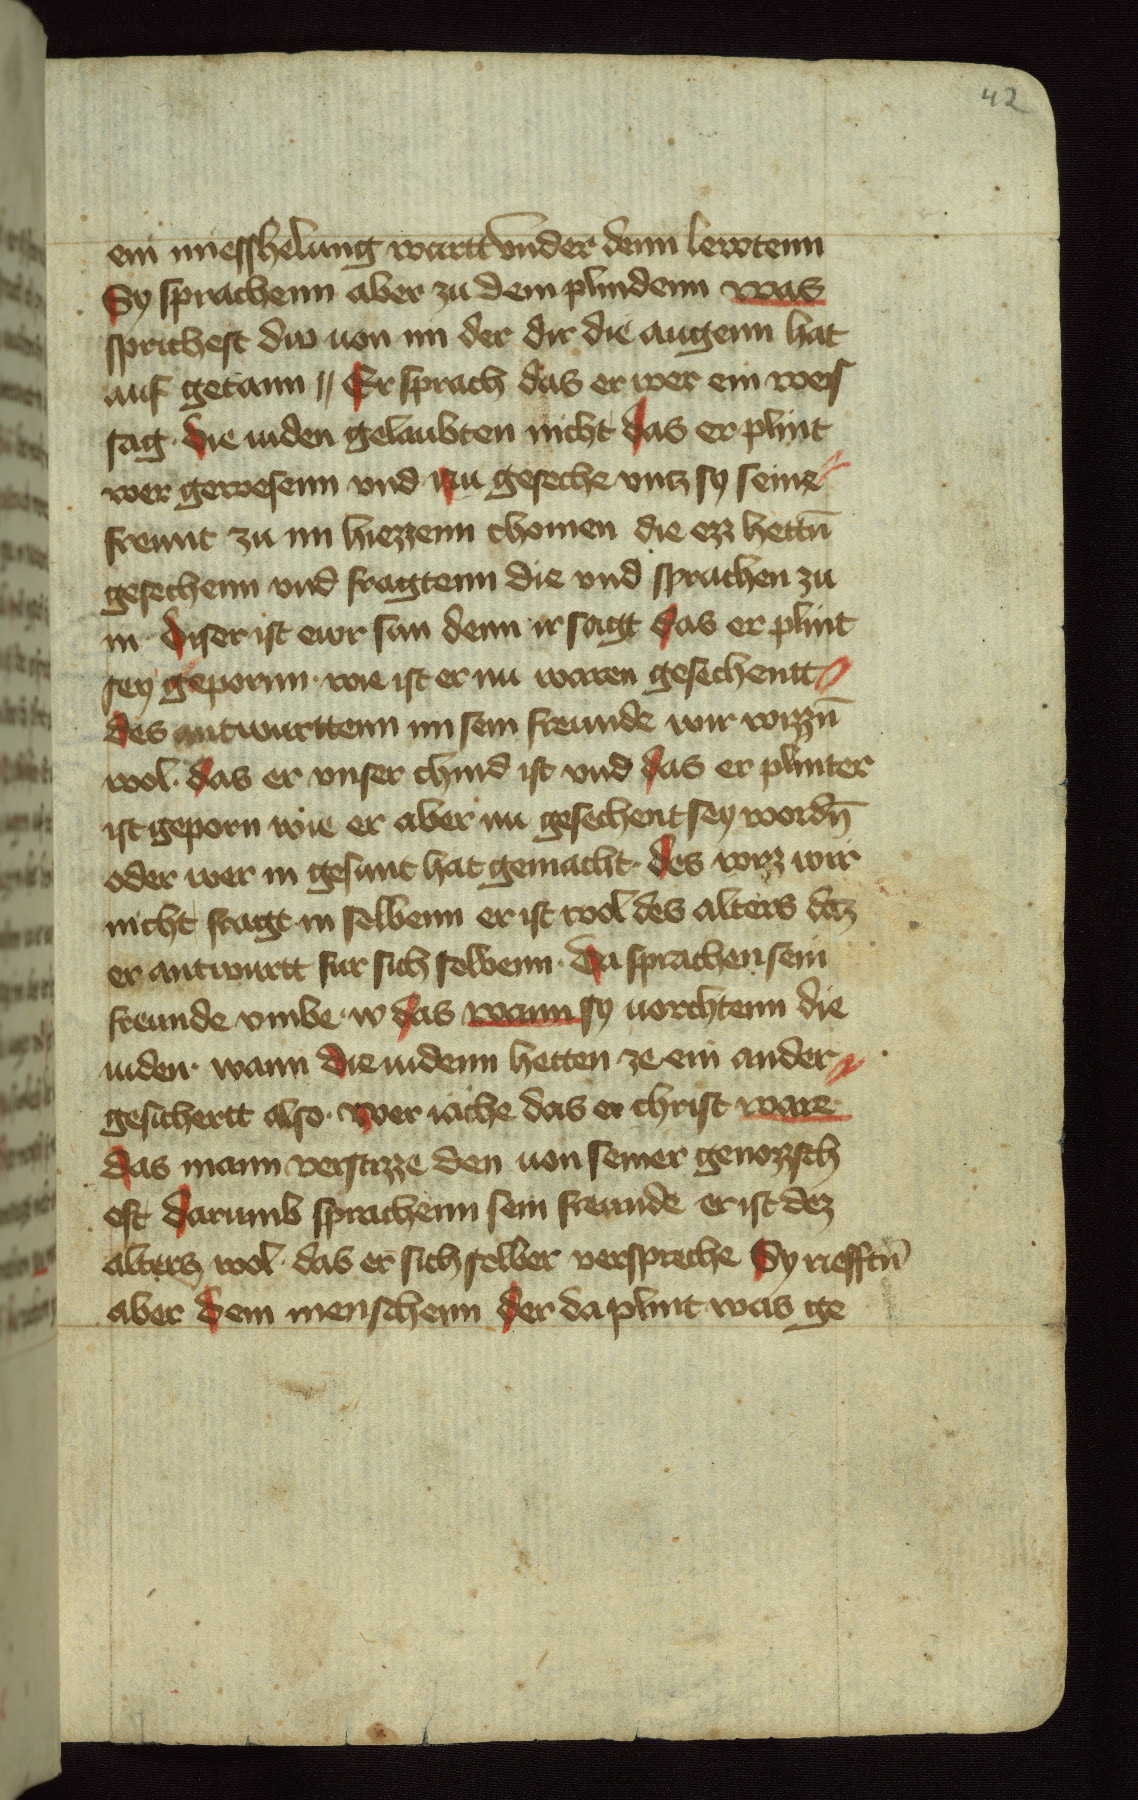 42
ein miesshelung wartt vnder denn lewtenn
Sy sprachenn aber zu dem plindenn was
sprichest dw uon im der dir die augenn hat
auf getann // Er sprach das er wer ein weis
sag · die iuden gelaubten nicht das er plint
wer gewesenn vnd nu geseche vntz sy seine
freunt zu im hiezzenn chomen die ezz hettn̄
gesechenn vnd fragtenn die vnd sprachen zu
in · diser ist ewr sun denn ir sagt das er plint
sey gepornn · wie ist er nu waren gesechentt
des antwurttenn im sein freunde wir wizzn̄
wol · das er vnser chind ist vnd das er plinter
ist geporn wie er aber nu gesechent sey wordn̄
oder wer in gesunt hat gemacht · des wiz wir
nicht fragt in selbenn er ist wol des alters daz
er antwurtt fur sich selbenn · Da sprachen sein
freunde vmbe · w das wann sy uorchtenn die
iuden · wann die iudenn hetten ze ein ander
gesichertt also · wer iache das er christ ware
das mann verstizze den uon seiner genozzsch
eft darumb sprachenn sein freunde er ist dez
alters wol · das er sich selber verspreche Sy riefftn̄
aber dem menschenn der da plint was ge